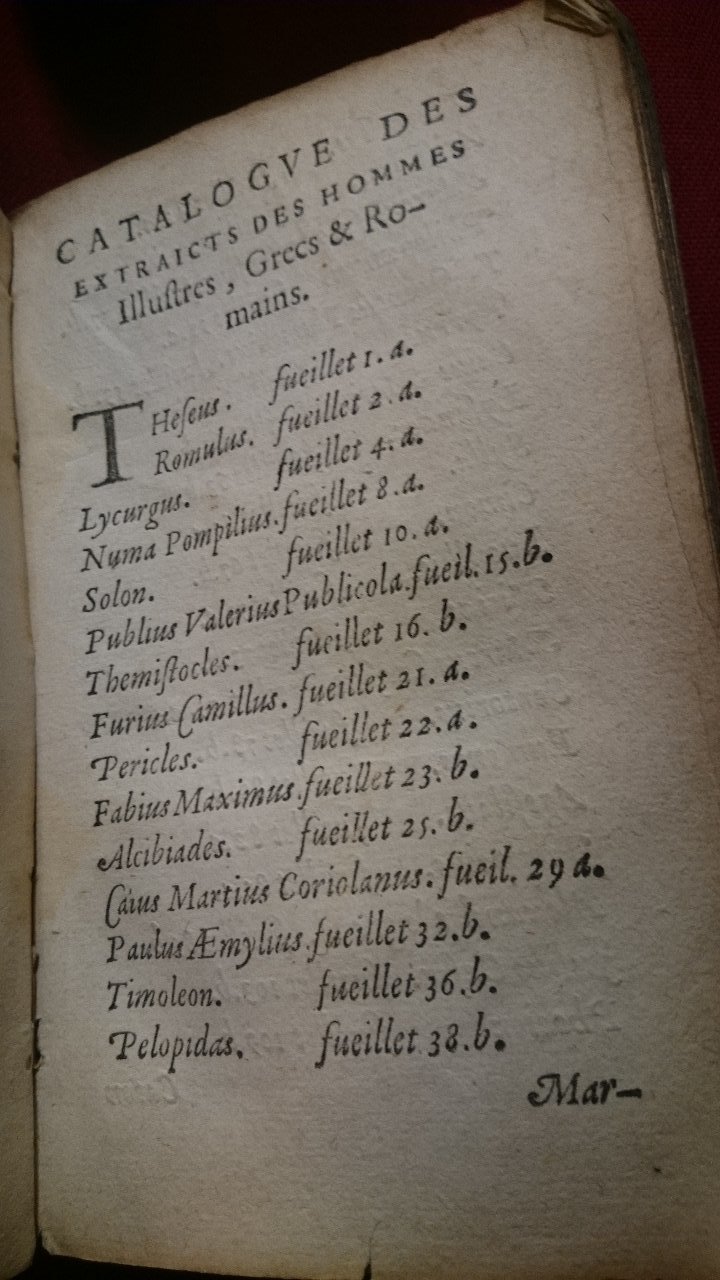 CATALOGVE DES
EXTRAICTS DES HOMMES
Illuſtres, Grecs & Ro-
mains.
THeſeus. fueillet 1. a.
Romulus. fueillet 2. a.
Lycurgus. fueillet 4. a.
Numa Pompilius. fueillet 8. a.
Solon. fueillet 10. a.
Publius Valerius Publicola. fueil. 15. b.
Themiſtocles. fueillet 16. b.
Furius Camillus. fueillet 21. a.
Pericles. fueillet 22. a.
Fabius Maximus. fueillet 23. b.
Alcibiades. fueillet 25. b.
Caius Martius Coriolanus. fueil. 29 a.
Paulus Æmylius. fueillet 32. b.
Timoleon. fueillet 36. b.
Pelopidas. fueillet 38. b.
Mar-